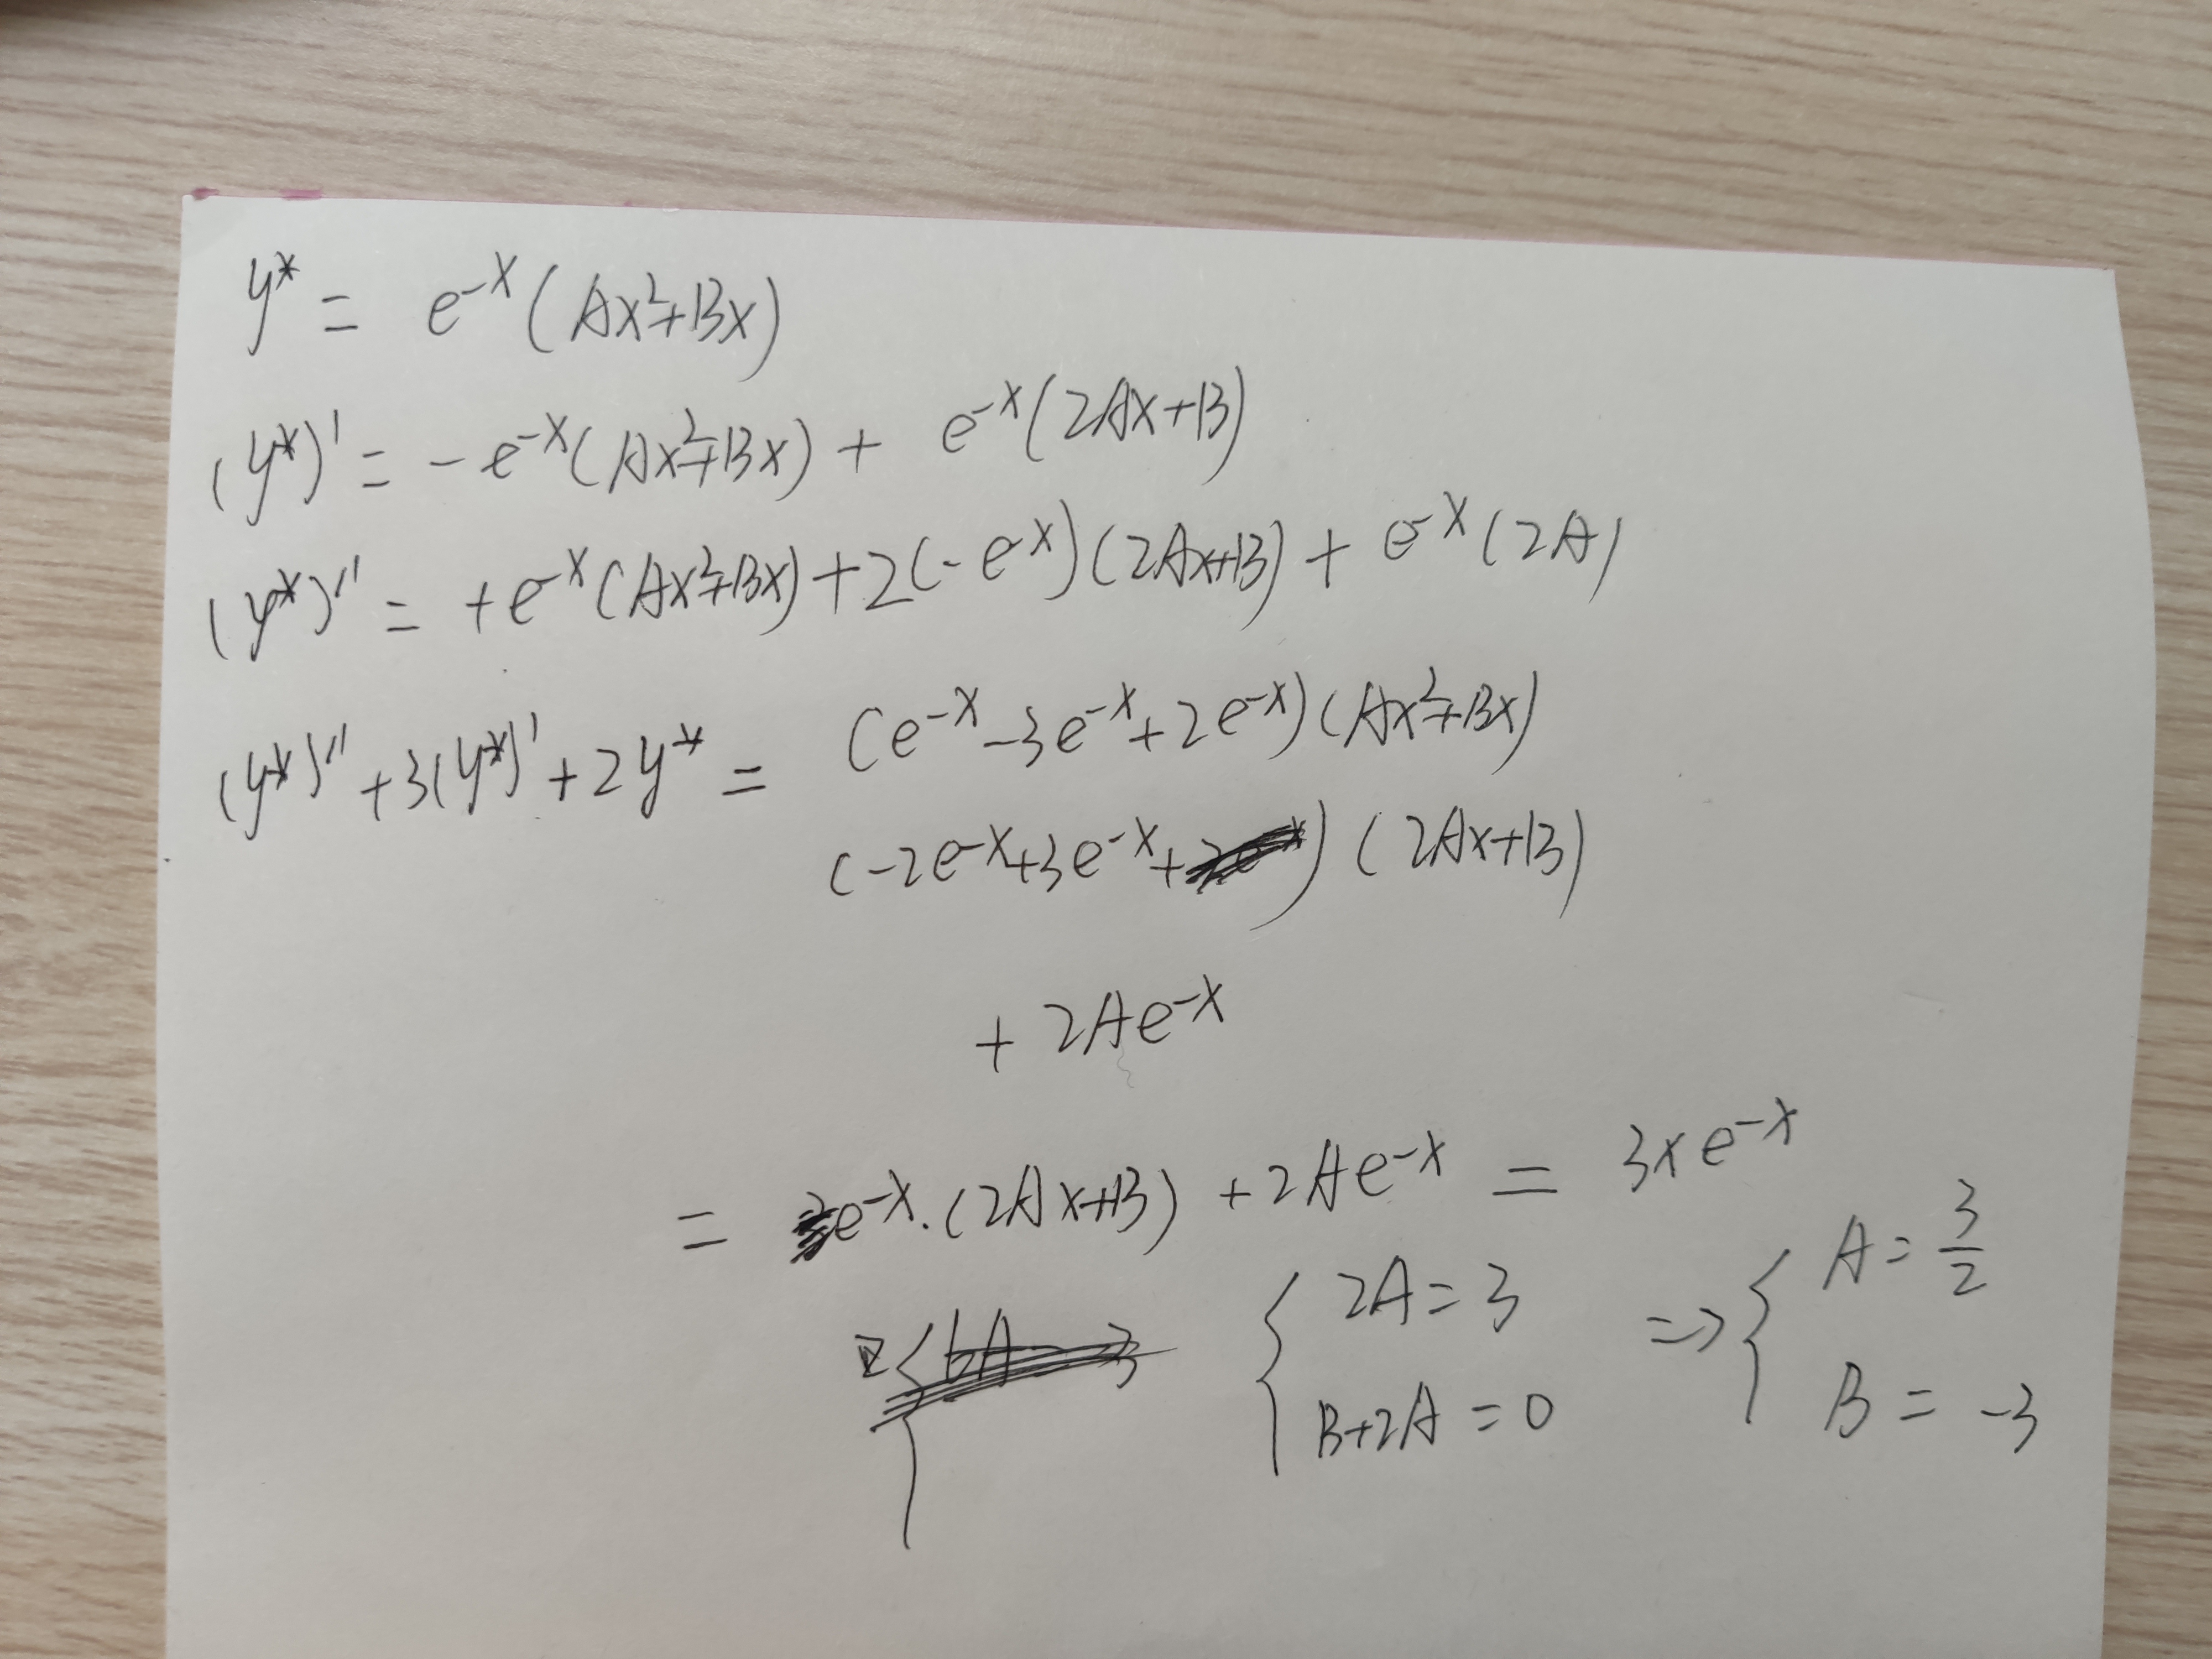 y* = e^{-x}(Ax²+Bx)
(y*)' = -e^{-x}(Ax²+Bx) + e^{-x}(2Ax+B)
(y*)'' = +e^{-x}(Ax²+Bx)+2(-e^{-x})(2Ax+B) + e^{-x}(2A)
(y*)''+3(y*)'+2y* = (e^{-x}-3e^{-x}+2e^{-x})(Ax²+Bx)
(-2e^{-x}+3e^{-x}+) (2Ax+B)
+ 2Ae^{-x}
= e^{-x}·(2Ax+B) + 2Ae^{-x} = 3xe^{-x}
{ 2A=3 => { A = 3/2
B+2A=0 B = -3